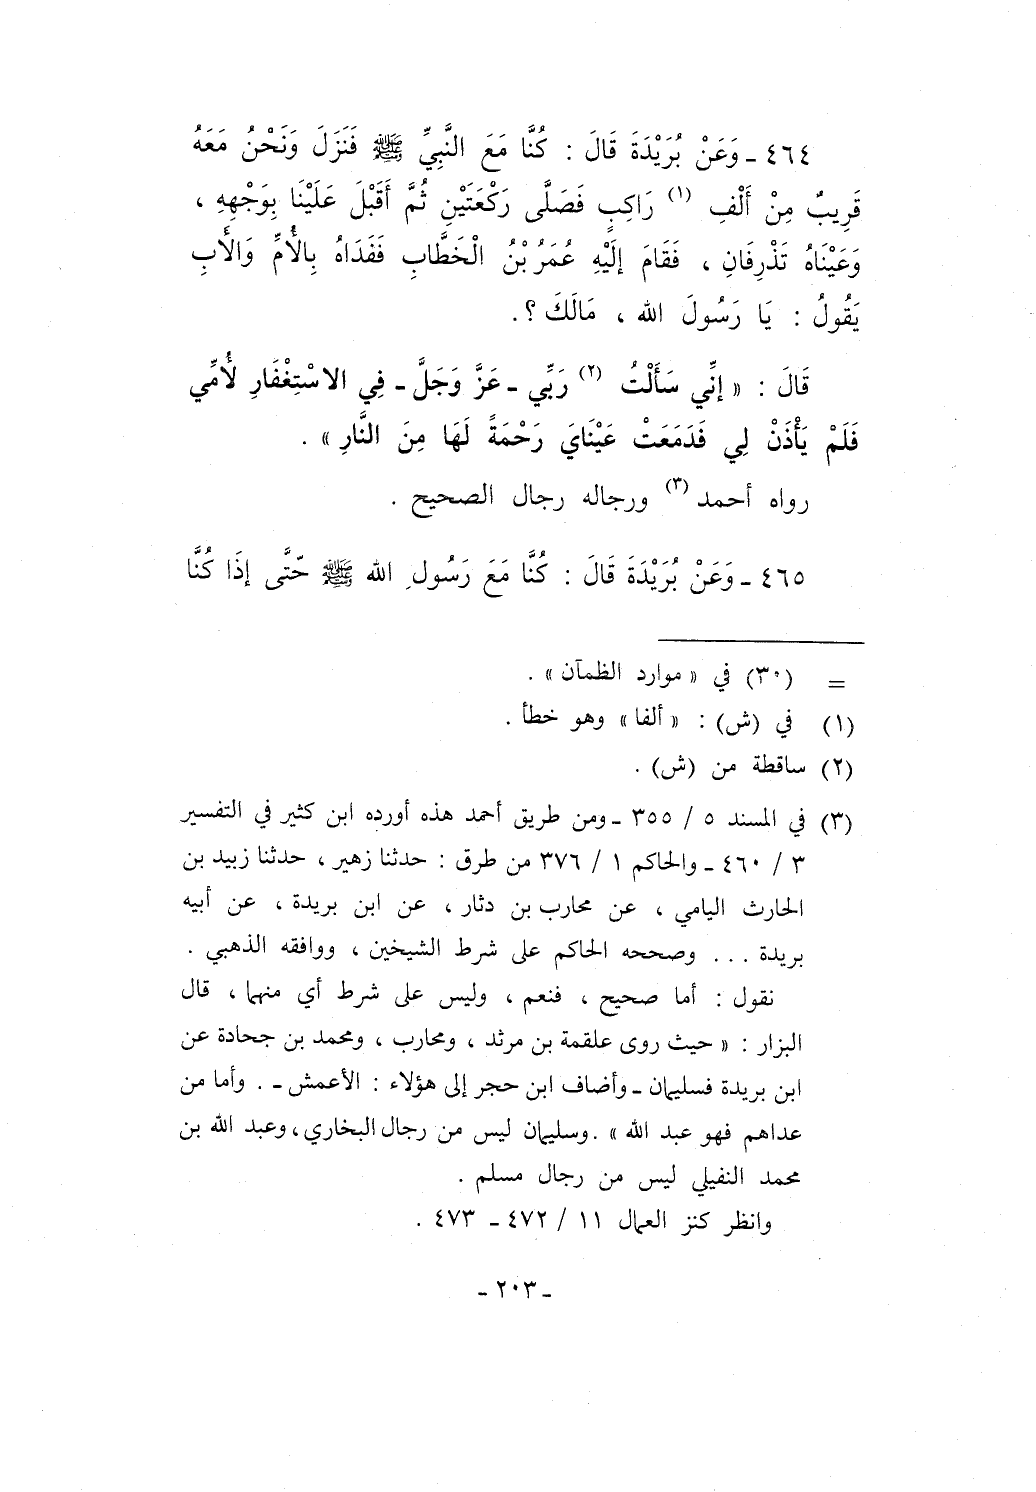 ٤٦٤ ـ وَعَنْ بُرَيْدَةَ قَالَ : كُنَّا مَعَ النَّبِيِّ ﷺ فَنَزَلَ وَنَحْنُ مَعَهُ
قَرِيبٌ مِنْ أَلْفِ (١) رَاكِبٍ فَصَلَّى رَكْعَتَيْنِ ثُمَّ أَقْبَلَ عَلَيْنَا بِوَجْهِهِ ،
وَعَيْنَاهُ تَذْرِفَانِ ، فَقَامَ إِلَيْهِ عُمَرُ بْنُ الْخَطَّابِ فَفَدَاهُ بِالأُمِّ وَالأَبِ
يَقُولُ : يَا رَسُولَ الله ، مَالَكَ ؟ .
قَالَ : « إِنِّي سَأَلْتُ (٢) رَبِّي ـ عَزَّ وَجَلَّ ـ فِي الاسْتِغْفَارِ لأُمِّي
فَلَمْ يَأْذَنْ لِي فَدَمَعَتْ عَيْنَايَ رَحْمَةً لَهَا مِنَ النَّارِ » .
رواه أحمد (٣) ورجاله رجال الصحيح .
٤٦٥ ـ وَعَنْ بُرَيْدَةَ قَالَ : كُنَّا مَعَ رَسُولِ الله ﷺ حَتَّى إِذَا كُنَّا
= (٣٠) في « موارد الظمآن » .
(١) في (ش) : « ألفا » وهو خطأ .
(٢) ساقطة من (ش) .
(٣) في المسند ٥ / ٣٥٥ ـ ومن طريق أحمد هذه أورده ابن كثير في التفسير
٣ / ٤٦٠ ـ والحاكم ١ / ٣٧٦ من طرق : حدثنا زهير ، حدثنا زبيد بن
الحارث اليامي ، عن محارب بن دثار ، عن ابن بريدة ، عن أبيه
بريدة ... وصححه الحاكم على شرط الشيخين ، ووافقه الذهبي .
نقول : أما صحيح ، فنعم ، وليس على شرط أي منهما ، قال
البزار : « حيث روى علقمة بن مرثد ، ومحارب ، ومحمد بن جحادة عن
ابن بريدة فسليمان ـ وأضاف ابن حجر إلى هؤلاء : الأعمش ـ . وأما من
عداهم فهو عبد الله » . وسليمان ليس من رجال البخاري ، وعبد الله بن
محمد النفيلي ليس من رجال مسلم .
وانظر كنز العمال ١١ / ٤٧٢ ـ ٤٧٣ .
ـ ٢٠٣ ـ